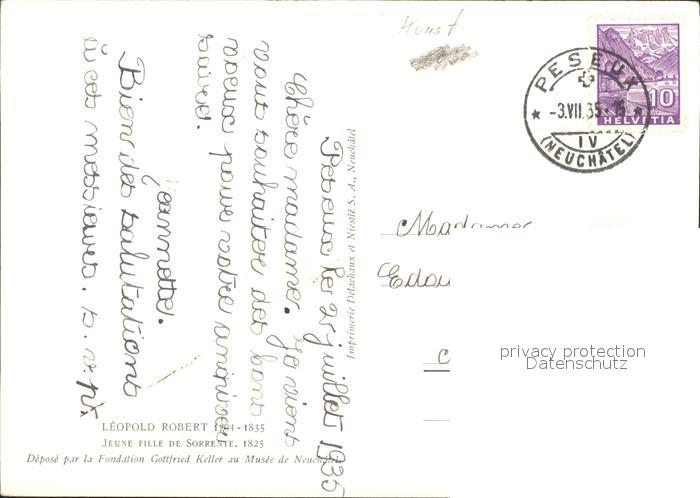 Kunst
PESEUX
-3.VII.35.-15
IV
(NEUCHÂTEL)
10
HELVETIA
Peseux le 2 juillet 1935
Chère madame. Je viens
vous souhaiter des bons
voeux pour votre anniver
saire.
Jeannette.
Bien des salutations
à ces messieurs. s. v. pl.
Imprimerie Delachaux et Niestlé S. A., Neuchâtel
Madame
Edou
privacy protection
Datenschutz
LÉOPOLD ROBERT 1794-1835
JEUNE FILLE DE SORRENTE. 1825
Déposé par la Fondation Gottfried Keller au Musée de Neuchâtel